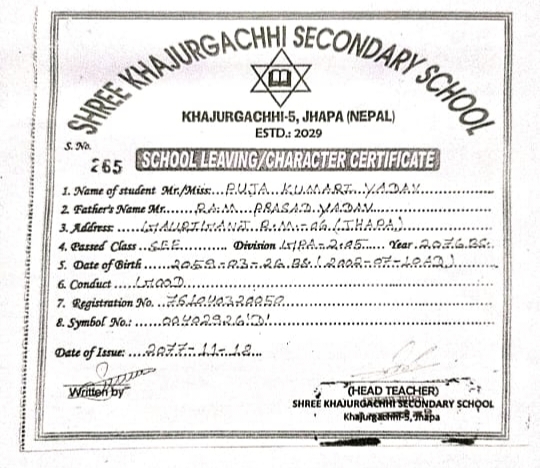 SHREE KHAJURGACHHI SECONDARY SCHOOL
KHAJURGACHHI-5, JHAPA (NEPAL)
ESTD.: 2029
S. No.
265
SCHOOL LEAVING/CHARACTER CERTIFICATE
1. Name of student Mr./Miss:...PUJA KUMARI YADAV
2. Father's Name Mr......RAM PRASAD YADAV
3. Address: GAURIGANJ R.M.-06 (JHAPA)
4. Passed Class..SEE....... Division GPA-2.05..... Year.2076 BS.
5. Date of Birth......2059-03-26 BS (2002-07-10 AD)
6. Conduct......GOOD
7. Registration No. 761040320050
8. Symbol No.:......00402926 'D'
Date of Issue: ...2077-11-18...
Written by
(HEAD TEACHER)
SHREE KHAJURGACHHI SECONDARY SCHOOL
Khajurgachhi-5, Jhapa